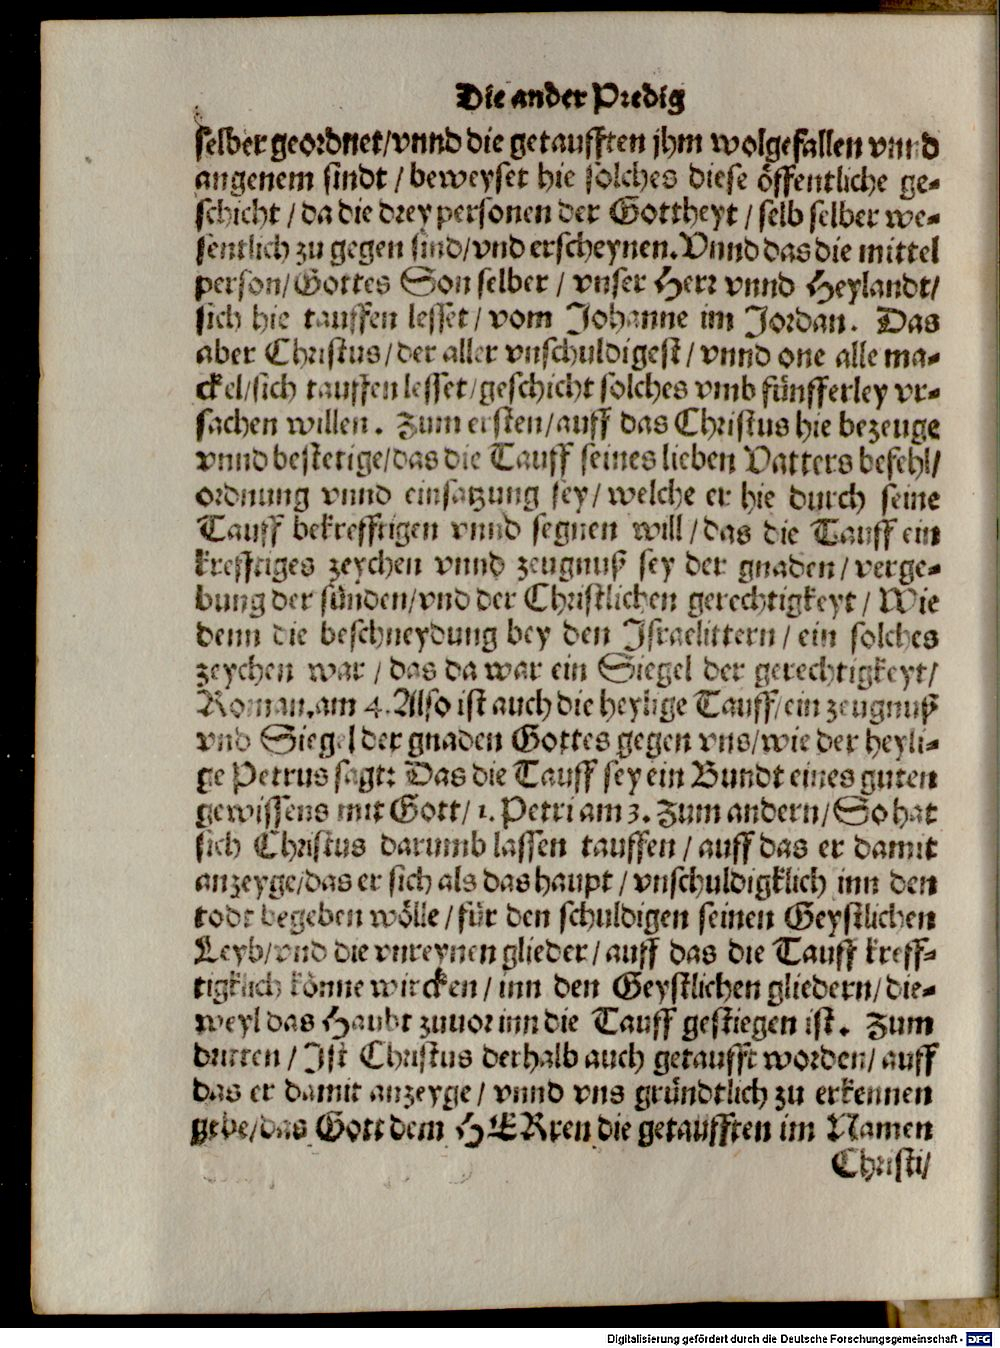 Die ander Predig
selber geordnet/vnnd die getaufften jhm wolgefallen vnnd
angenem sindt / beweyset hie solches diese öffentliche ge-
schicht / da die drey personen der Gottheyt / selb selber we-
sentlich zu gegen sind/vnd erscheynen. Vnnd das die mittel
person/Gottes Son selber / vnser Herr vnnd Heylandt/
sich hie tauffen lesset / vom Johanne im Jordan. Das
aber Christus/der aller vnschuldigest / vnnd one alle ma-
ckel/sich tauffen lesset/geschicht solches vmb fünfferley vr-
sachen willen. Zum ersten/auff das Christus hie bezeuge
vnnd bestetige/das die Tauff seines lieben Vatters befehl/
ordnung vnnd einsatzung sey/welche er hie durch seine
Tauff bekrefftigen vnnd segnen will/das die Tauff ein
krefftiges zeychen vnnd zeugnuß sey der gnaden/verge-
bung der sünden/vnd der Christlichen gerechtigkeyt/ Wie
denn die beschneydung bey den Israelittern / ein solches
zeychen war / das da war ein Siegel der gerechtigkeyt/
Roman. am 4. Also ist auch die heylige Tauff/ein zeugnuß
vnd Siegel der gnaden Gottes gegen vns/wie der heyli-
ge Petrus sagt: Das die Tauff sey ein Bundt eines guten
gewissens mit Gott/ 1. Petri am 3. Zum andern/So hat
sich Christus darumb lassen tauffen / auff das er damit
anzeyge/das er sich als das haupt / vnschuldigklich inn den
todt begeben wölle/für den schuldigen seinen Geystlichen
Leyb/vnd die vnreynen glieder/ auff das die Tauff kreff-
tigklich könne wircken/ inn den Geystlichen gliedern/die-
weyl das Haubt zuuor inn die Tauff gestiegen ist. Zum
dritten / Ist Christus derhalb auch getaufft worden/ auff
das er damit anzeyge / vnnd vns gründtlich zu erkennen
gebe/das Gott dem HERren die getaufften im Namen
Christi/
Digitalisierung gefördert durch die Deutsche Forschungsgemeinschaft - DFG